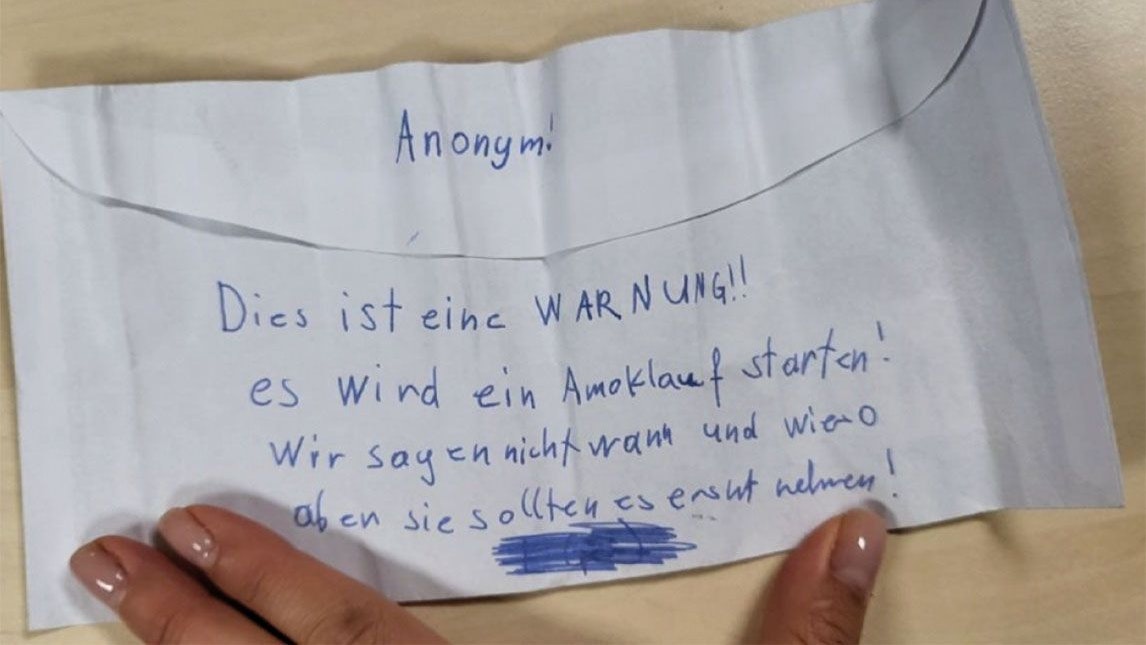 Anonym!
Dies ist eine WARNUNG!!
es wird ein Amoklauf starten!
Wir sagen nicht wann und wie
aber sie sollten es ernst nehmen!